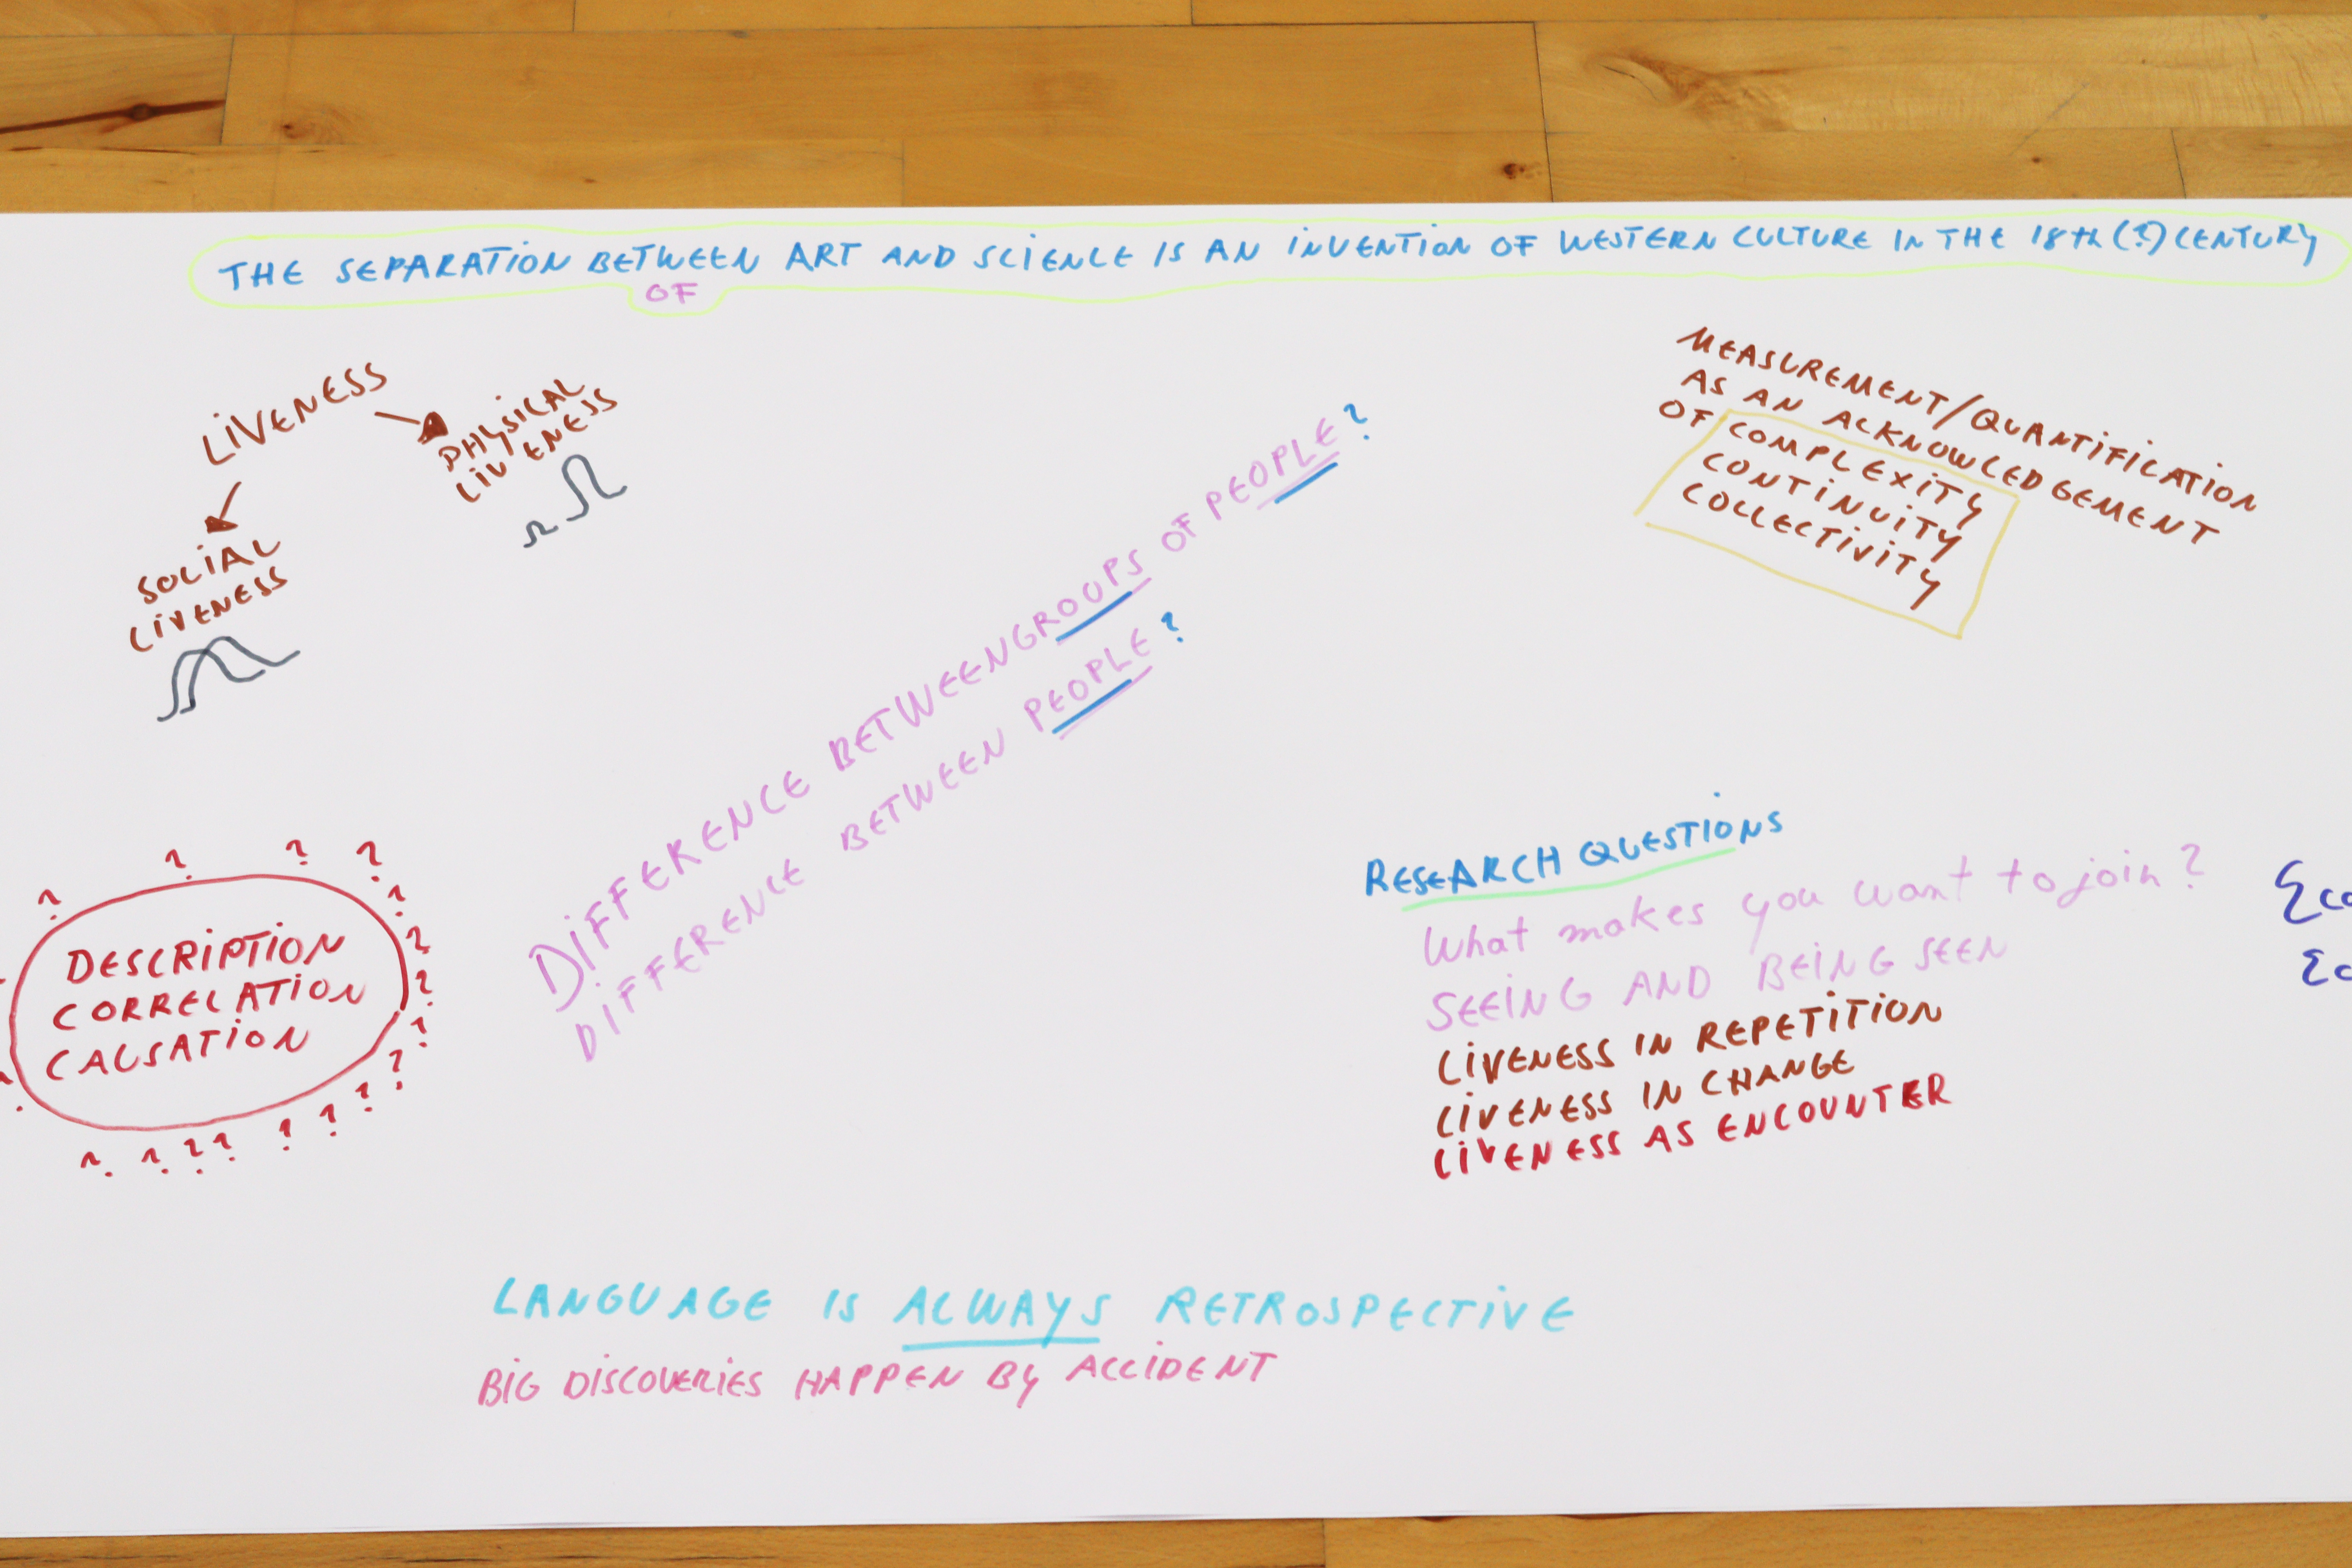 THE SEPARATION BETWEEN ART AND SCIENCE IS AN INVENTION OF WESTERN CULTURE IN THE 18th (?) CENTURY
OF
LIVENESS
PHYSICAL
LIVENESS
SOCIAL
LIVENESS
MEASUREMENT/QUANTIFICATION
AS AN ACKNOWLEDGEMENT
OF COMPLEXITY
CONTINUITY
COLLECTIVITY
DIFFERENCE BETWEEN GROUPS OF PEOPLE?
DIFFERENCE BETWEEN PEOPLE?
? ? ? ? ? ? ? ? ? ? ? ? ? ? ? ? ?
DESCRIPTION
CORRELATION
CAUSATION
RESEARCH QUESTIONS
What makes you want to join?
SEEING AND BEING SEEN
LIVENESS IN REPETITION
LIVENESS IN CHANGE
LIVENESS AS ENCOUNTER
LANGUAGE IS ALWAYS RETROSPECTIVE
BIG DISCOVERIES HAPPEN BY ACCIDENT